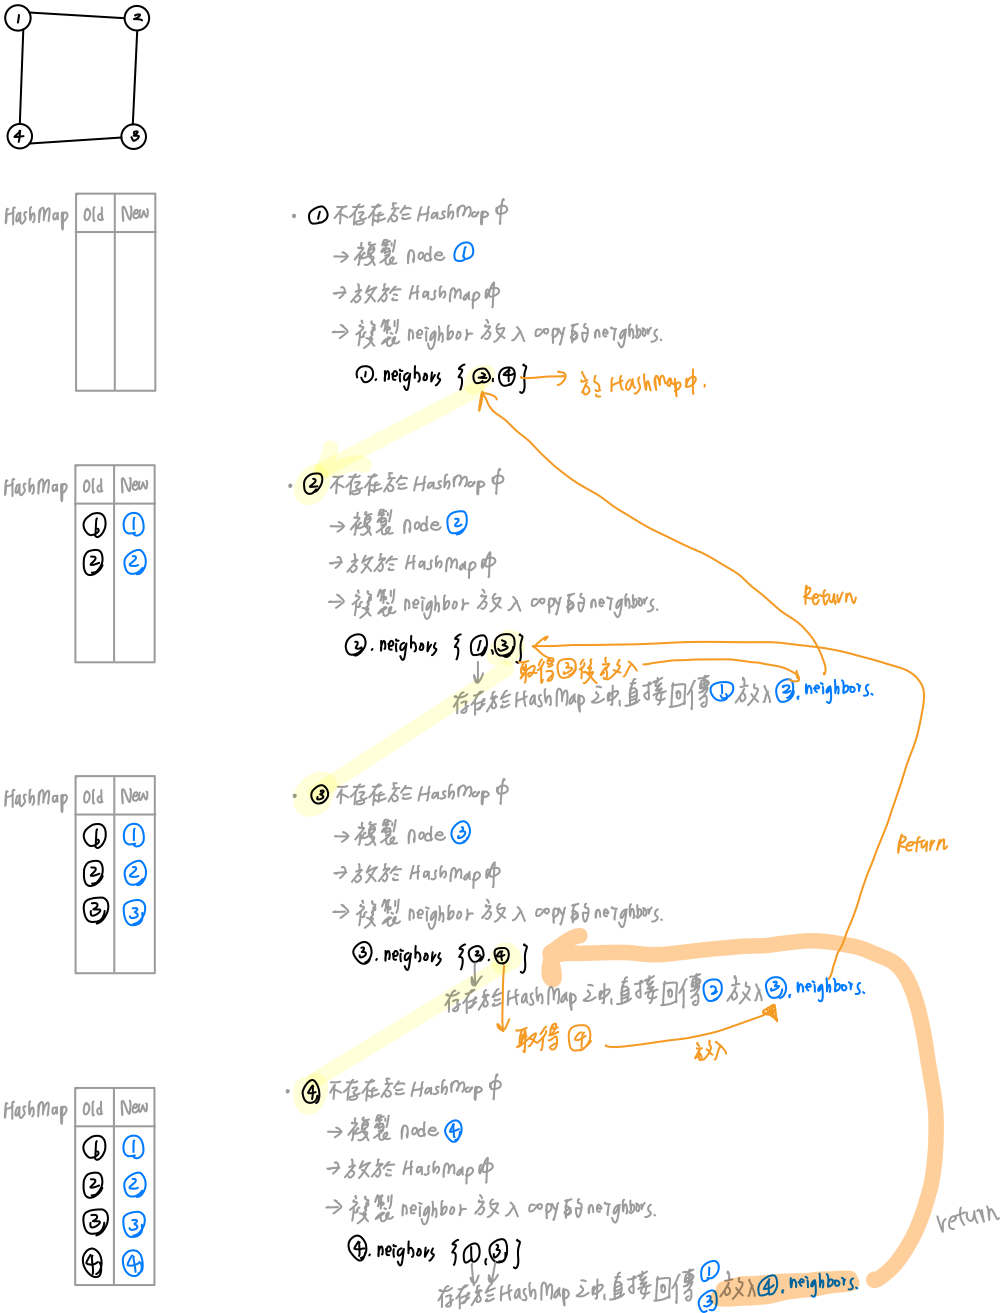 ① ②
④ ③
HashMap Old New
• ① 不存在於 HashMap 中
→ 複製 node ①
→ 放於 HashMap 中
→ 複製 neighbor 放入 copy 的 neighbors.
①.neighors {②.④} → 於 HashMap 中.
HashMap Old New
① ①
② ②
• ② 不存在於 HashMap 中
→ 複製 node ②
→ 放於 HashMap 中
→ 複製 neighbor 放入 copy 的 neighbors.
Return
②.neighors {①,③}
取得③後放入
存在於 HashMap 之中,直接回傳① 放入②.neighbors.
HashMap Old New
① ①
② ②
③ ③
• ③ 不存在於 HashMap 中
→ 複製 node ③
Return
→ 放於 HashMap 中
→ 複製 neighbor 放入 copy 的 neighbors.
③.neighors {②.④}
存在於 HashMap 之中,直接回傳② 放入③.neighbors.
取得④ 放入
HashMap Old New
① ①
② ②
③ ③
④ ④
• ④ 不存在於 HashMap 中
→ 複製 node ④
→ 放於 HashMap 中
→ 複製 neighbor 放入 copy 的 neighbors.
return
④.neighors {①,③}
存在於 HashMap 之中,直接回傳①③ 放入④.neighbors.